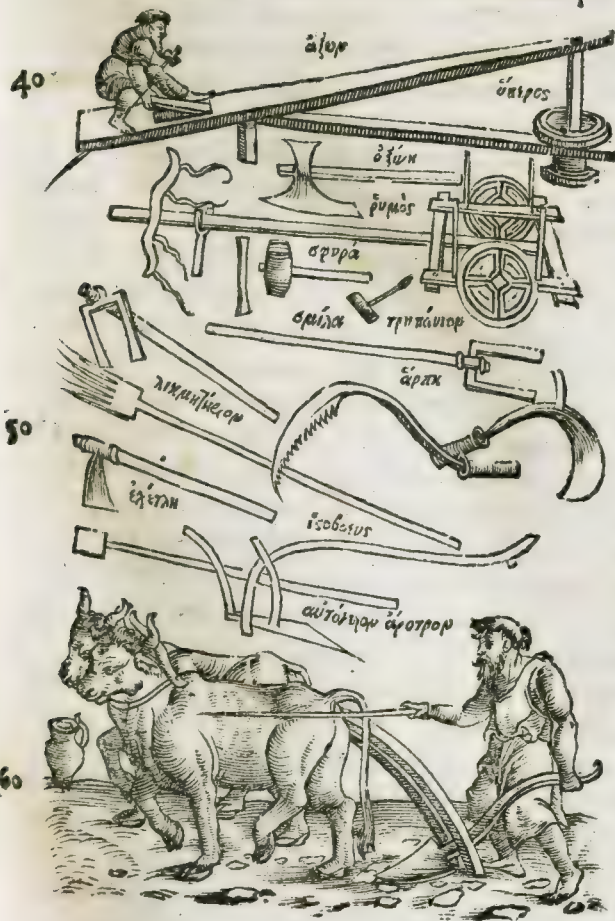 40
ἄξων
ὕπερος
ὀξύη
ῥυμὸς
σφυρά
σμίλα τρηπάνιον
ἅρπη
λικμητήριον
50
ἐχέτλη
ἱστοβοευς
αὐτόγυον ἄροτρον
60